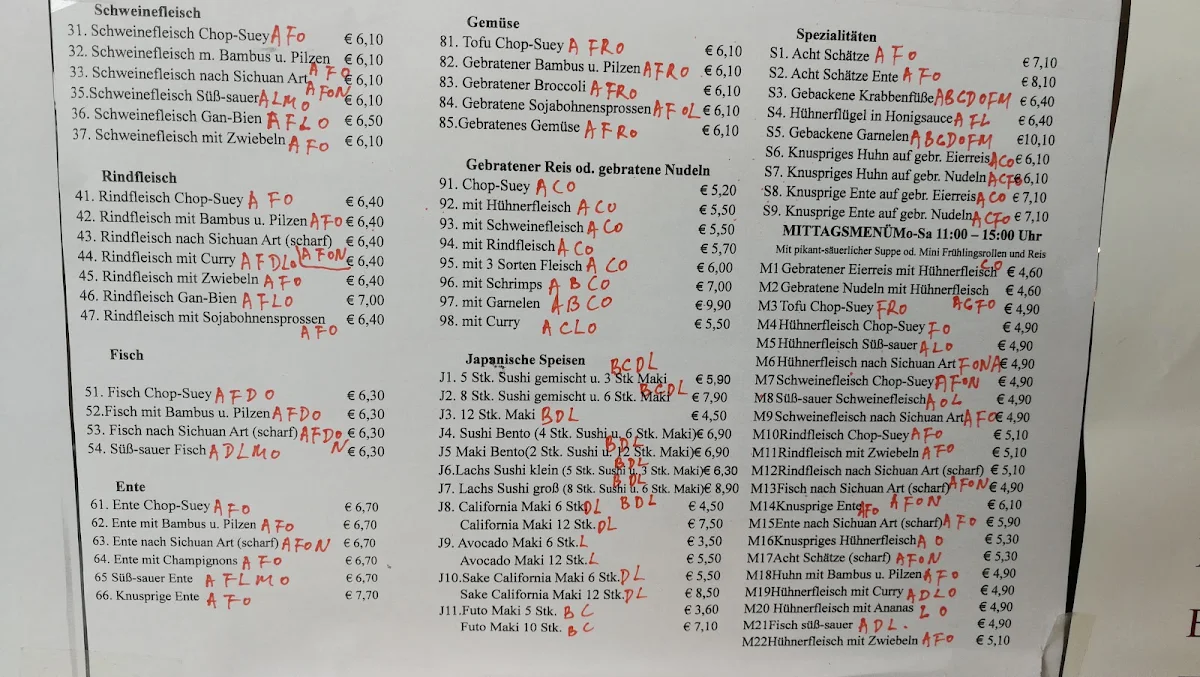 Schweinefleisch
31. Schweinefleisch Chop-Suey A F O € 6,10
32. Schweinefleisch m. Bambus u. Pilzen € 6,10
33. Schweinefleisch nach Sichuan Art A F O € 6,10
35.Schweinefleisch Süß-sauer A L M O A F O N € 6,10
36. Schweinefleisch Gan-Bien A F L O € 6,50
37. Schweinefleisch mit Zwiebeln A F O € 6,10
Rindfleisch
41. Rindfleisch Chop-Suey A F O € 6,40
42. Rindfleisch mit Bambus u. Pilzen A F O € 6,40
43. Rindfleisch nach Sichuan Art (scharf) € 6,40
44. Rindfleisch mit Curry A F D L O A F O N € 6,40
45. Rindfleisch mit Zwiebeln A F O € 6,40
46. Rindfleisch Gan-Bien A F L O € 7,00
47. Rindfleisch mit Sojabohnensprossen € 6,40
A F O
Fisch
51. Fisch Chop-Suey A F D O € 6,30
52.Fisch mit Bambus u. Pilzen A F D O € 6,30
53. Fisch nach Sichuan Art (scharf) A F D O € 6,30
54. Süß-sauer Fisch A D L M O N € 6,30
Ente
61. Ente Chop-Suey A F O € 6,70
62. Ente mit Bambus u. Pilzen A F O € 6,70
63. Ente nach Sichuan Art (scharf) A F O N € 6,70
64. Ente mit Champignons A F O € 6,70
65 Süß-sauer Ente A F L M O € 6,70
66. Knusprige Ente A F O € 7,70
Gemüse
81. Tofu Chop-Suey A F R O € 6,10
82. Gebratener Bambus u. Pilzen A F R O € 6,10
83. Gebratener Broccoli A F R O € 6,10
84. Gebratene Sojabohnensprossen A F O L € 6,10
85.Gebratenes Gemüse A F R O € 6,10
Gebratener Reis od. gebratene Nudeln
91. Chop-Suey A C O € 5,20
92. mit Hühnerfleisch A C O € 5,50
93. mit Schweinefleisch A C O € 5,50
94. mit Rindfleisch A C O € 5,70
95. mit 3 Sorten Fleisch A C O € 6,00
96. mit Schrimps A B C O € 7,00
97. mit Garnelen A B C O € 9,90
98. mit Curry A C L O € 5,50
Japanische Speisen B C D L
J1. 5 Stk. Sushi gemischt u. 3 Stk Maki € 5,90
J2. 8 Stk. Sushi gemischt u. 6 Stk. Maki B C D L € 7,90
J3. 12 Stk. Maki B D L € 4,50
J4. Sushi Bento (4 Stk. Sushi u. 6 Stk. Maki)€ 6,90
J5 Maki Bento(2 Stk. Sushi u. 12 Stk. Maki)€ 6,90 B D L
J6.Lachs Sushi klein (5 Stk. Sushi u. 3 Stk. Maki)€ 6,30 B D L
J7. Lachs Sushi groß (8 Stk. Sushi u. 6 Stk. Maki)€ 8,90 B D L
J8. California Maki 6 Stk. D L B D L € 4,50
California Maki 12 Stk. D L € 7,50
J9. Avocado Maki 6 Stk. L € 3,50
Avocado Maki 12 Stk. L € 5,50
J10.Sake California Maki 6 Stk. D L € 5,50
Sake California Maki 12 Stk. D L € 8,50
J11.Futo Maki 5 Stk. B C € 3,60
Futo Maki 10 Stk. B C € 7,10
Spezialitäten
S1. Acht Schätze A F O € 7,10
S2. Acht Schätze Ente A F O € 8,10
S3. Gebackene Krabbenfüße A B C D O F M € 6,40
S4. Hühnerflügel in Honigsauce A F L € 6,40
S5. Gebackene Garnelen A B C D O F M €10,10
S6. Knuspriges Huhn auf gebr. Eierreis A C O € 6,10
S7. Knuspriges Huhn auf gebr. Nudeln A C F O € 6,10
S8. Knusprige Ente auf gebr. Eierreis A C O € 7,10
S9. Knusprige Ente auf gebr. Nudeln A C F O € 7,10
MITTAGSMENÜMo-Sa 11:00 – 15:00 Uhr
Mit pikant-säuerlicher Suppe od. Mini Frühlingsrollen und Reis
M1 Gebratener Eierreis mit Hühnerfleisch C O € 4,60
M2 Gebratene Nudeln mit Hühnerfleisch € 4,60
M3 Tofu Chop-Suey F R O A C F O € 4,90
M4 Hühnerfleisch Chop-Suey F O € 4,90
M5 Hühnerfleisch Süß-sauer A L O € 4,90
M6 Hühnerfleisch nach Sichuan Art F O N A € 4,90
M7 Schweinefleisch Chop-Suey A F O N € 4,90
M8 Süß-sauer Schweinefleisch A O L € 4,90
M9 Schweinefleisch nach Sichuan Art A F O € 4,90
M10Rindfleisch Chop-Suey A F O € 5,10
M11Rindfleisch mit Zwiebeln A F O € 5,10
M12Rindfleisch nach Sichuan Art (scharf) € 5,10
M13Fisch nach Sichuan Art (scharf) A F O N € 4,90
M14Knusprige Ente A F O A F O N € 6,10
M15Ente nach Sichuan Art (scharf) A F O € 5,90
M16Knuspriges Hühnerfleisch A O € 5,30
M17Acht Schätze (scharf) A F O N € 5,30
M18Huhn mit Bambus u. Pilzen A F O € 4,90
M19Hühnerfleisch mit Curry A D L O € 4,90
M20 Hühnerfleisch mit Ananas L O € 4,90
M21Fisch süß-sauer A D L . € 4,90
M22Hühnerfleisch mit Zwiebeln A F O € 5,10